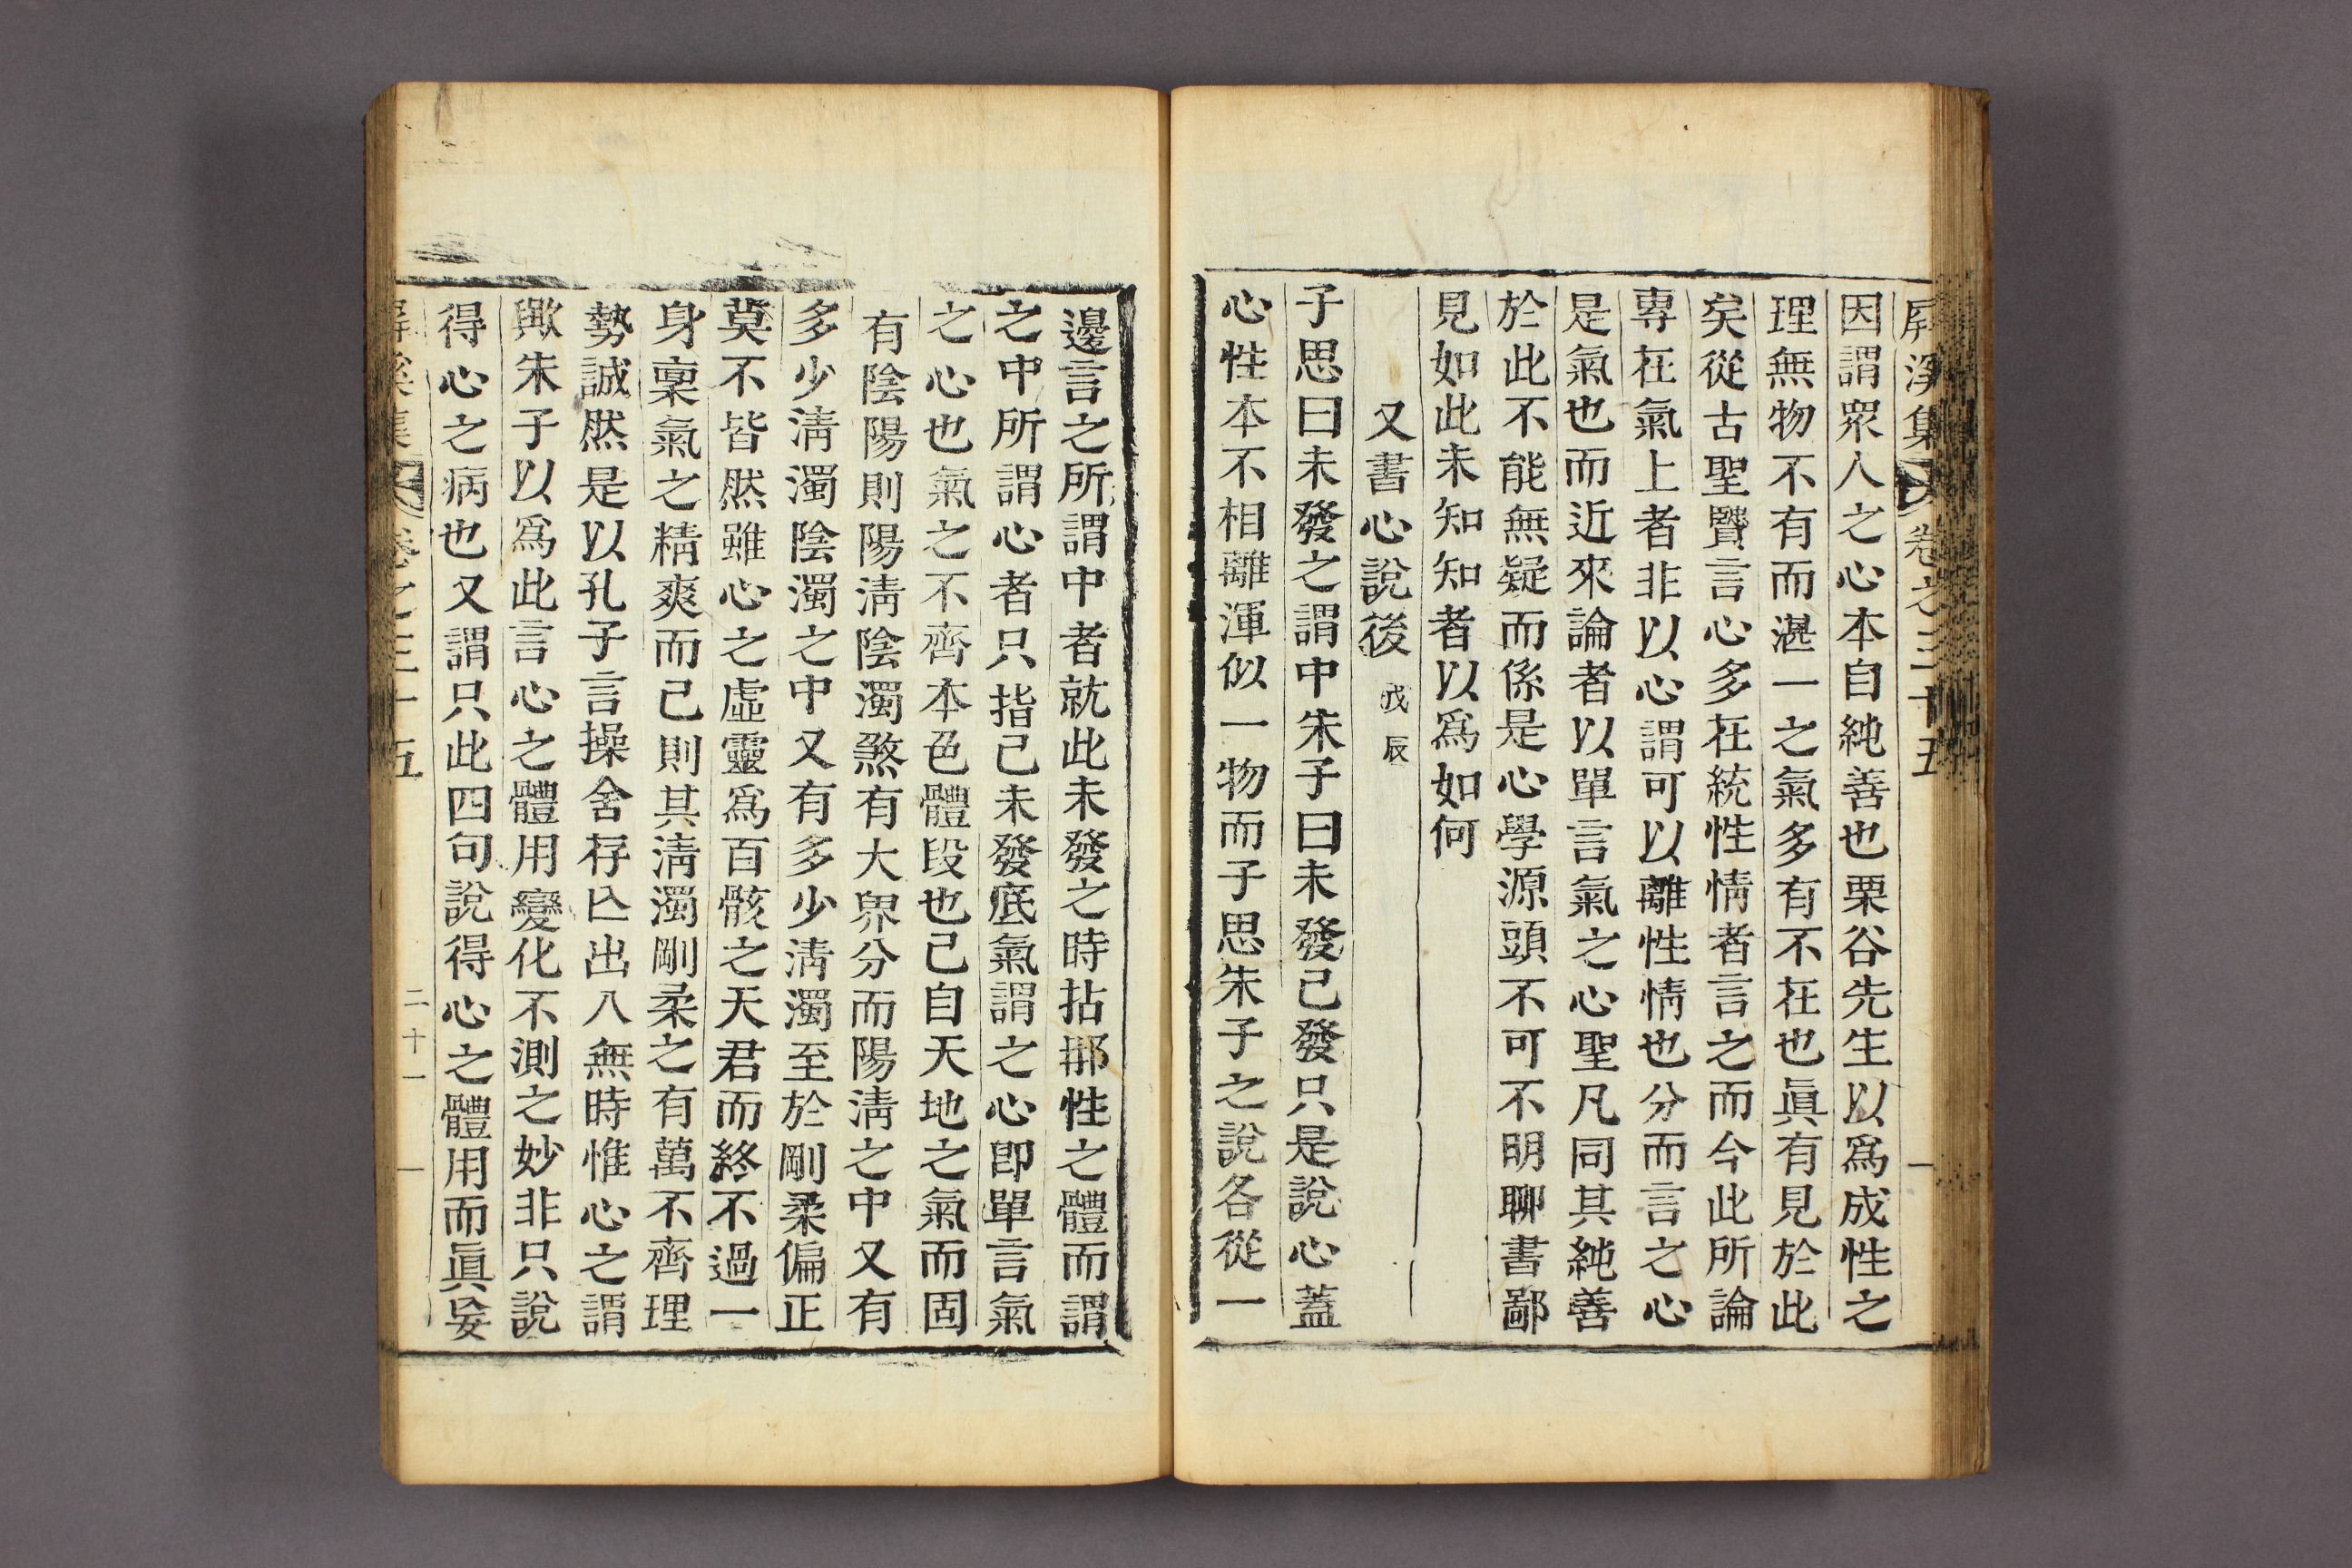 屛溪集 卷之三十五
因謂眾人之心本自純善也栗谷先生以爲成性之
理無物不有而湛一之氣多有不在也眞有見於此
矣從古聖賢言心多在統性情者言之而今此所論
專在氣上者非以心謂可以離性情也分而言之心
是氣也而近來論者以單言氣之心聖凡同其純善
於此不能無疑而係是心學源頭不可不明聊書鄙
見如此未知知者以爲如何
又書心說後 戊辰
子思曰未發之謂中朱子曰未發已發只是說心蓋
心性本不相離渾似一物而子思朱子之說各從一
邊言之所謂中者就此未發之時拈那性之體而謂
之中所謂心者只指已未發底氣謂之心卽單言氣
之心也氣之不齊本色體段也已自天地之氣而固
有陰陽則陽淸陰濁煞有大界分而陽淸之中又有
多少淸濁陰濁之中又有多少淸濁至於剛柔偏正
莫不皆然雖心之虛靈爲百骸之天君而終不過一
身稟氣之精爽而已則其淸濁剛柔之有萬不齊理
勢誠然是以孔子言操舍存亾出入無時惟心之謂
歟朱子以爲此言心之體用變化不測之妙非只說
得心之病也又謂只此四句說得心之體用而眞妄
屛溪集 卷之三十五 二十一